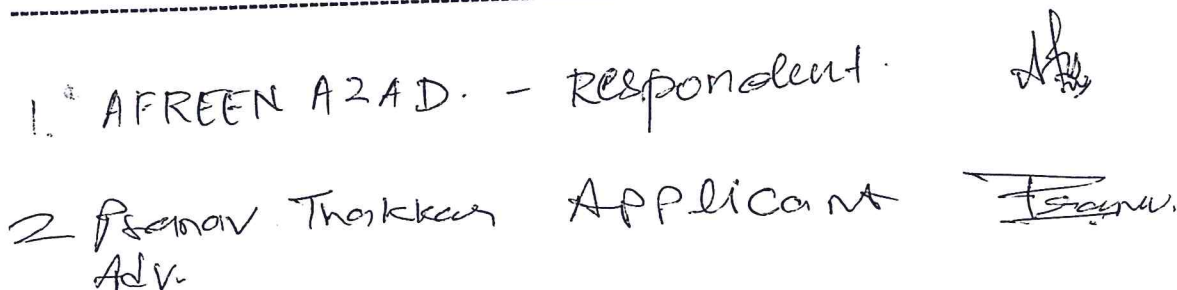 1. AFREEN AZAD. - Respondent.
2 Pranav Thakkar Applicant
Adv.